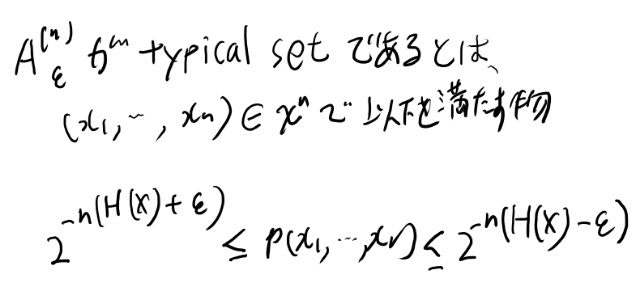 A_ε^(n) が typical set であるとは、
(x₁, …, xₙ) ∈ 𝒳ⁿ で 以下を満たす物
2^{-n(H(X)+ε)} ≤ p(x₁, …, xₙ) ≤ 2^{-n(H(X)-ε)}